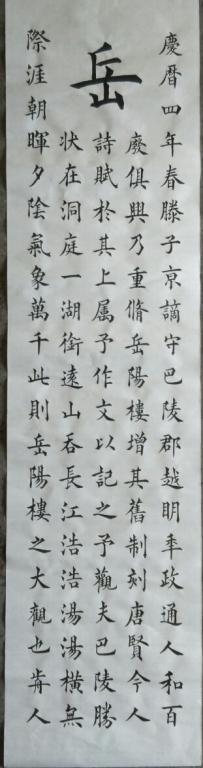 岳
慶曆四年春滕子亰謫守巴陵郡越眀秊政通人和百
廢俱興乃重脩岳陽樓增其舊制刻唐賢今人
詩賦於其上属予作文以記之予觀夫巴陵勝
狀在洞庭一湖銜遠山吞長江浩浩湯湯橫無
際涯朝暉夕陰氣象萬千此則岳陽樓之大觀也歬人